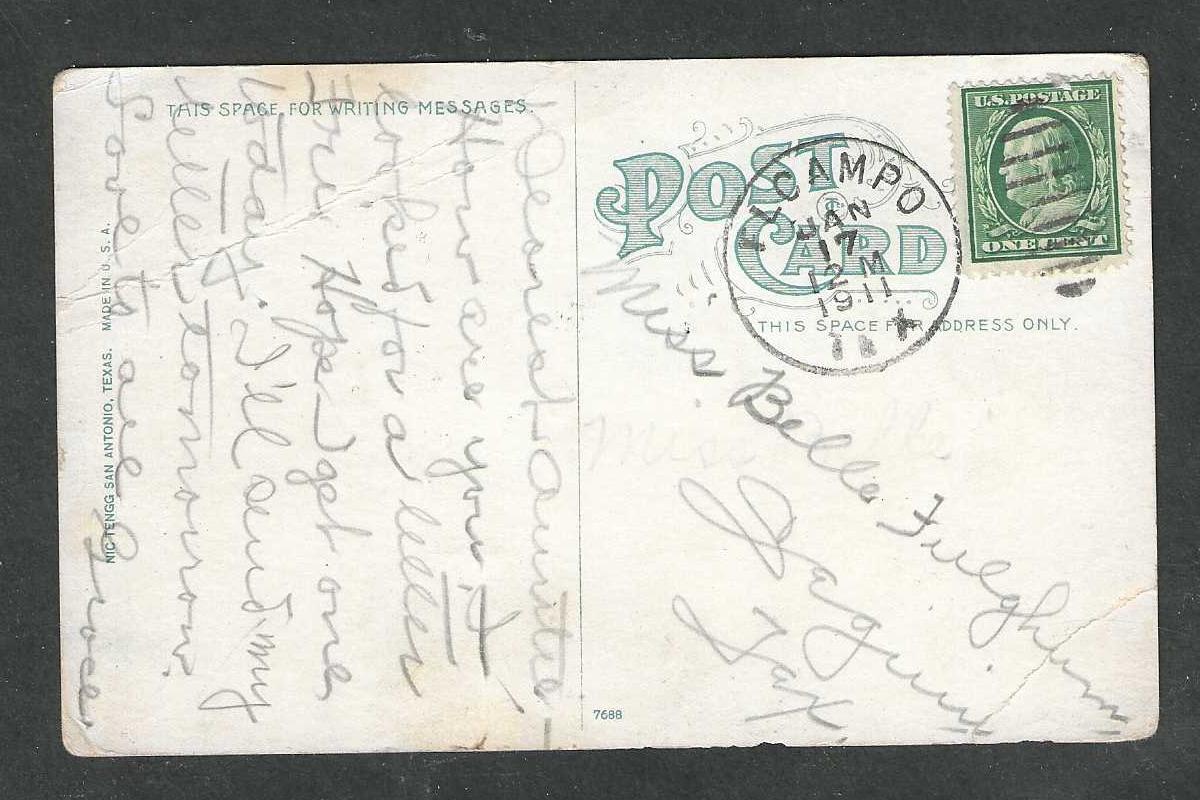 THIS SPACE FOR WRITING MESSAGES.
Dearest Auntie—
How are you? I
looked for a letter
Fri. Hope I get one
today. I'll send my
letter tomorrow.
Love to all Grace
NIC TENGG SAN ANTONIO, TEXAS. MADE IN U.S.A.
POST CARD
THIS SPACE FOR ADDRESS ONLY.
EL CAMPO
JAN
17
12 M
1911
TEX
U.S. POSTAGE
ONE CENT
Miss Belle Fulghum
Miss
Tex.
7688